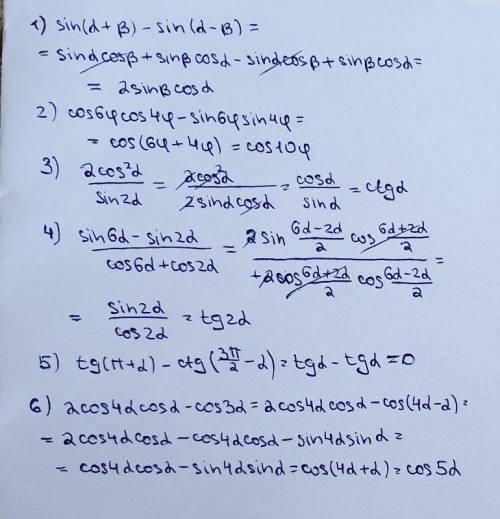 1) sin(α + β) - sin(α - β) =
= sinαcosβ + sinβcosα - sinαcosβ + sinβcosα =
= 2sinβcosα
2) cos6φcos4φ - sin6φsin4φ =
= cos(6φ + 4φ) = cos10φ
3) 2cos²α / sin2α = 2cos²α / 2sinαcosα = cosα / sinα = ctgα
4) sin6α - sin2α / cos6α + cos2α = 2sin 6α-2α/2 cos 6α+2α/2 / +2cos 6α+2α/2 cos 6α-2α/2 =
= sin2α / cos2α = tg2α
5) tg(π+α) - ctg(3π/2 - α) = tgα - tgα = 0
6) 2cos4αcosα - cos3α = 2cos4αcosα - cos(4α-α) =
= 2cos4αcosα - cos4αcosα - sin4αsinα =
= cos4αcosα - sin4αsinα = cos(4α+α) = cos5α